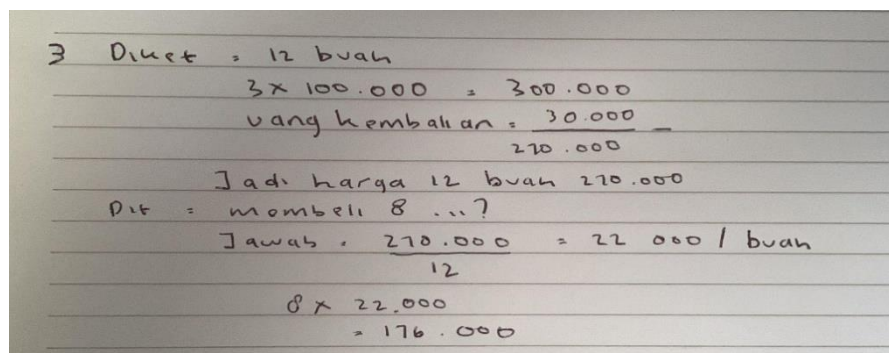 3 Diket = 12 buah
3 x 100.000 = 300.000
uang kembalian = 30.000 -
270.000
Jadi harga 12 buah 270.000
Dit = membeli 8 ...?
Jawab = 270.000 = 22 000 / buah
12
8 x 22.000
= 176.000